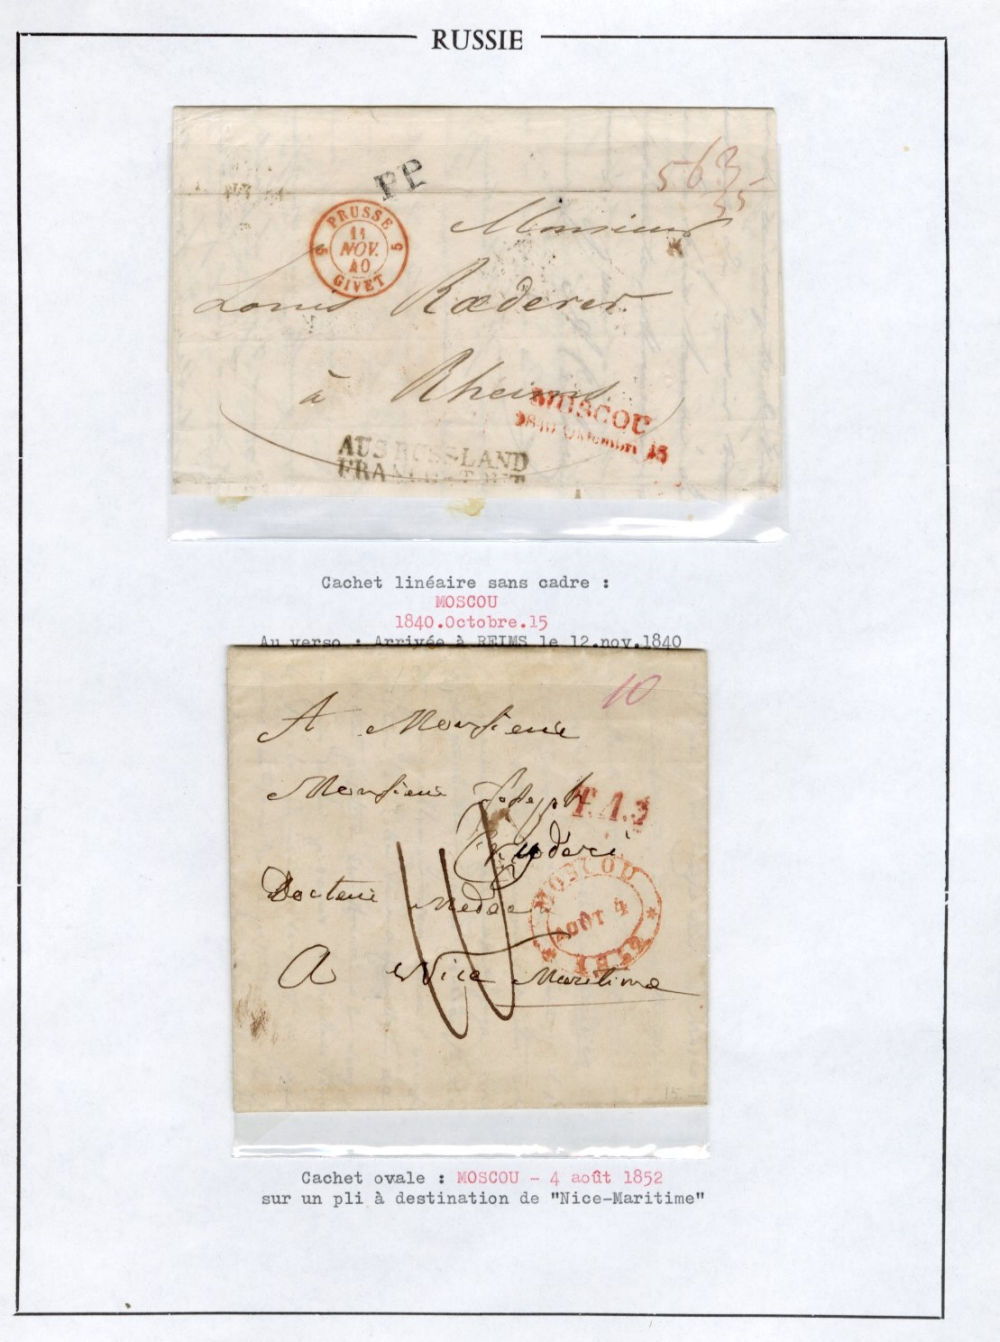 RUSSIE
PP
563
35
PRUSSE
11
NOV.
40
GIVET
5 5
Monsieur
Louis Rœderer
à Rheims
MOSCOU
1840 Oktembri 15
AUS RUSSLAND
Cachet linéaire sans cadre :
MOSCOU
1840.Octobre.15
Au verso : Arrivée à REIMS le 12.nov.1840
10
A Monsieur
Monsieur Joseph
Docteur
A Nice Maritime
MOSCOU
AOÛT 4
15
Cachet ovale : MOSCOU - 4 août 1852
sur un pli à destination de "Nice-Maritime"